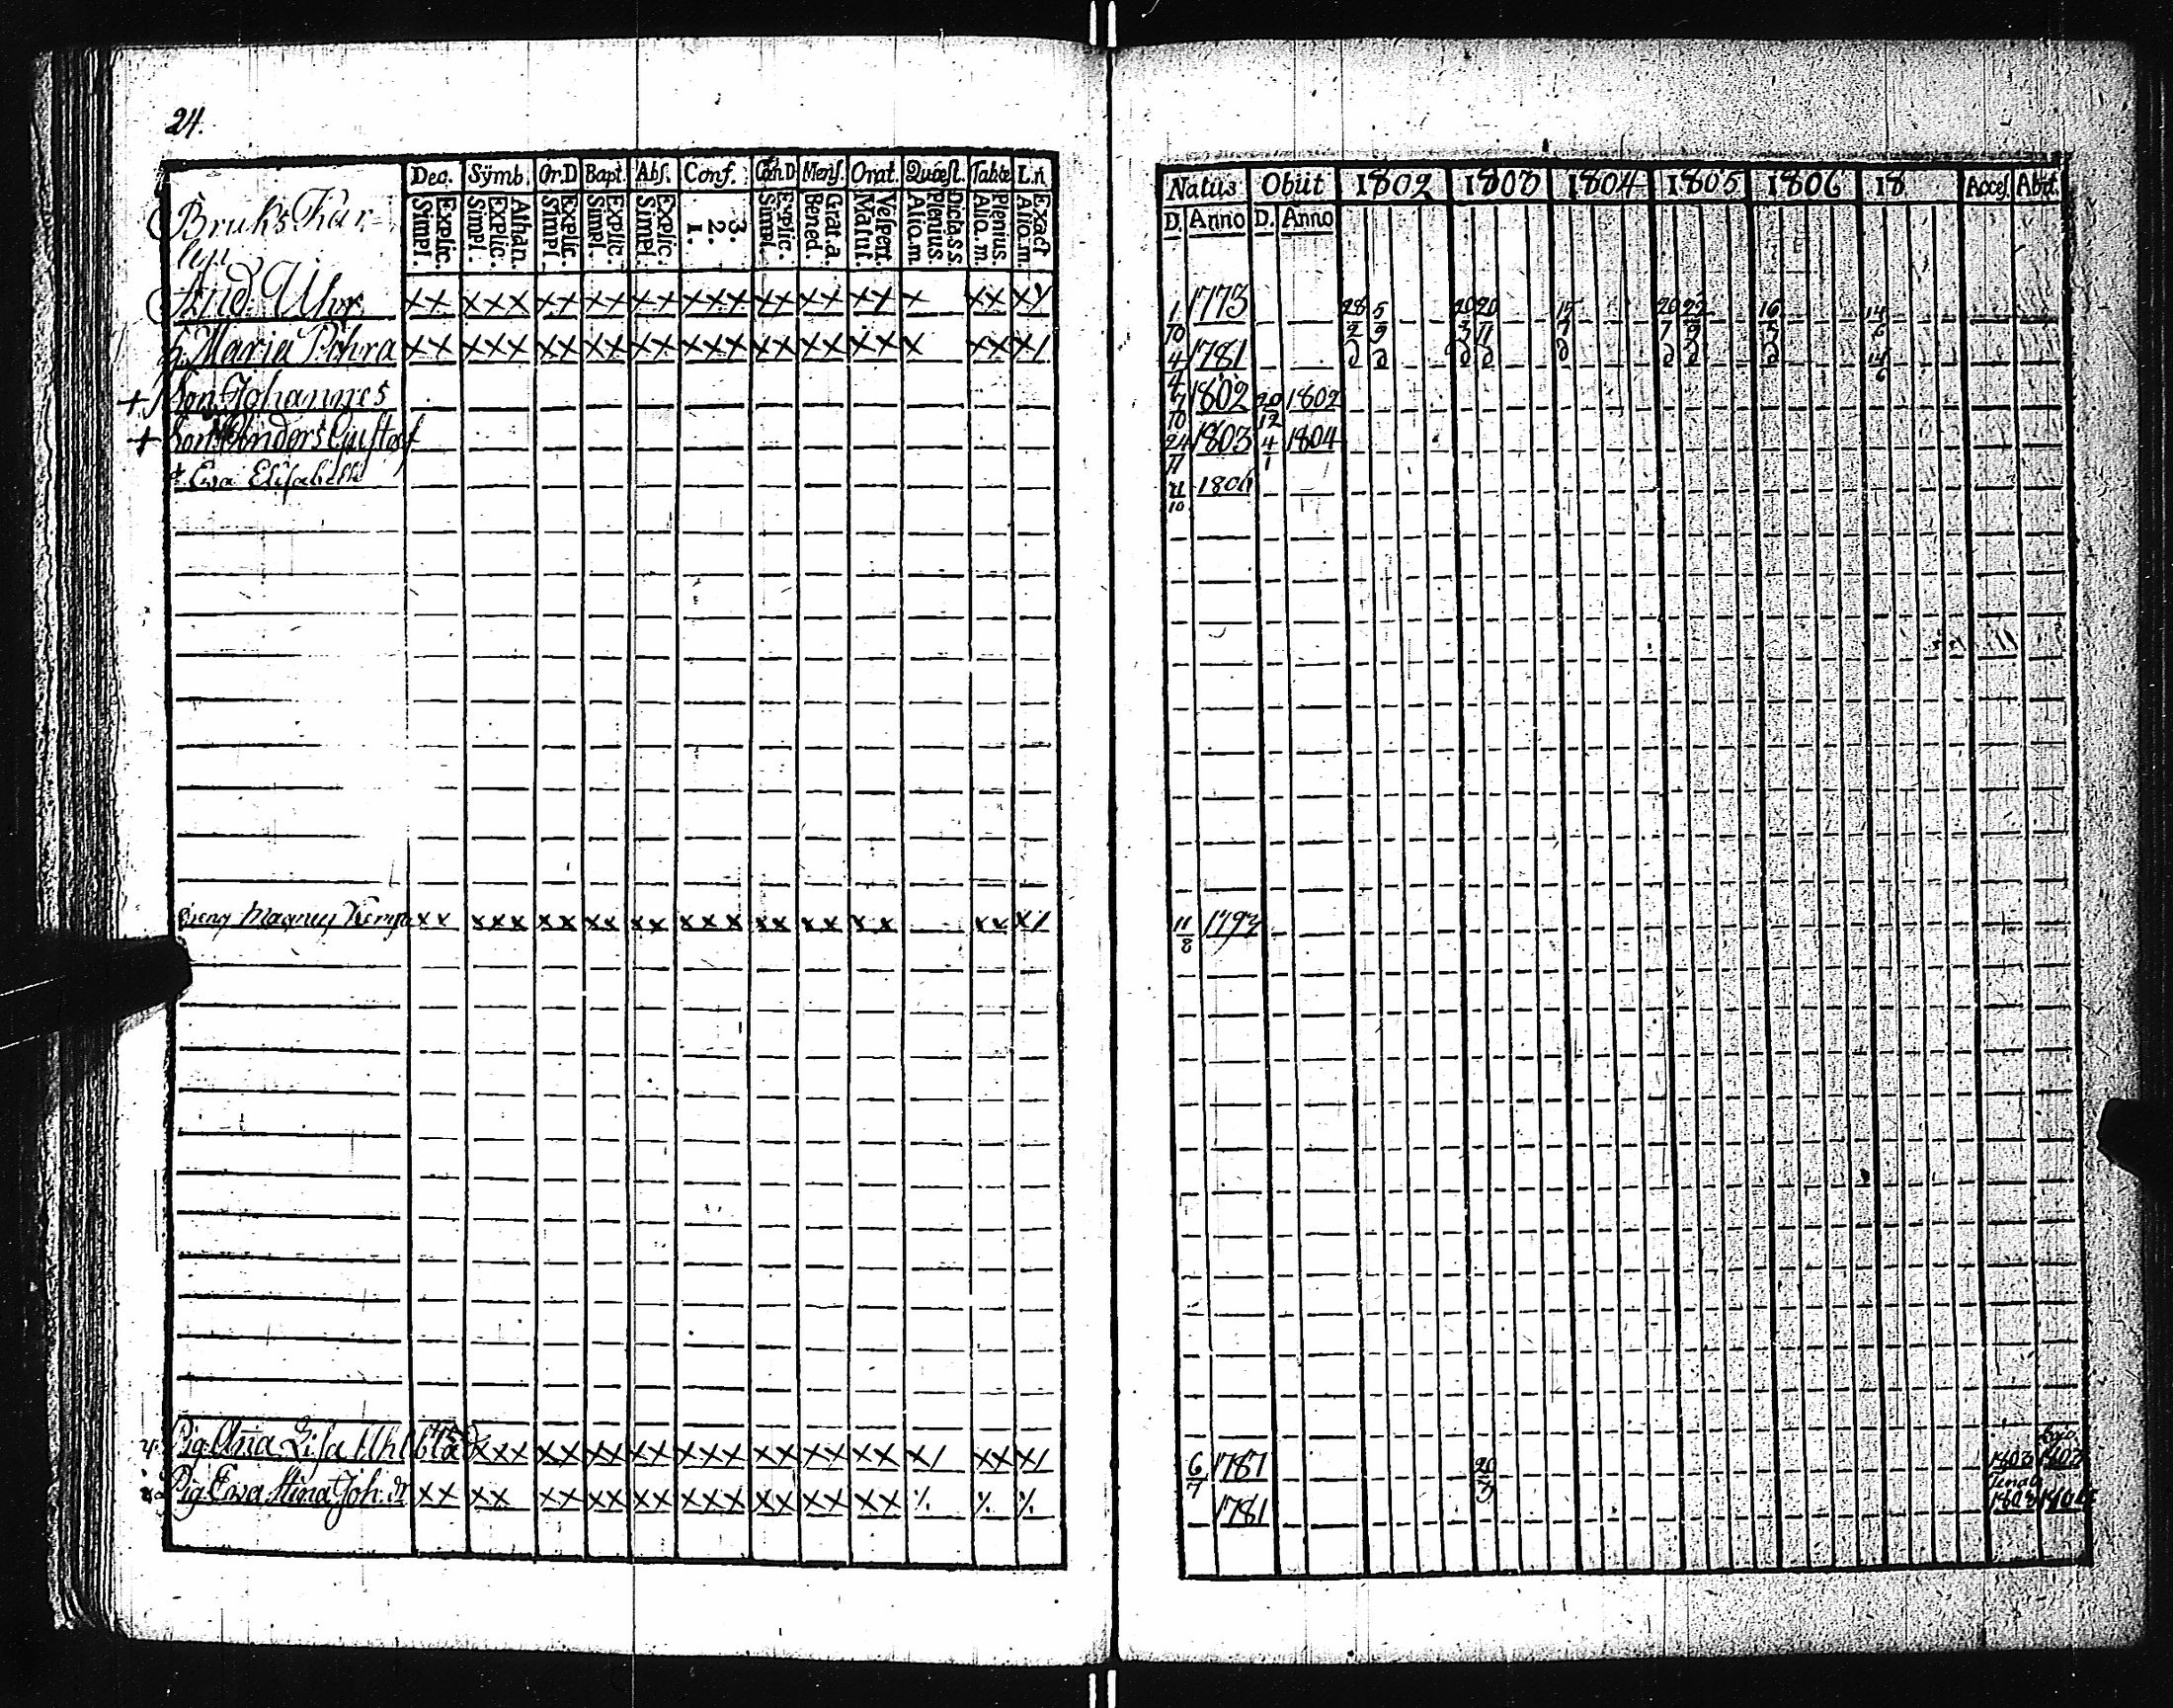 24.
Dec. Symb. Or.D Bapt. Abs. Conf. Cœn.D Mens. Orat. Quæst. Tabb L.n
Simpl. Explic. Simpl. Explic. Athan. Simpl. Explic. Simpl. Explic. Simpl. Explic. 1. 2. 3. Simpl. Explic. Bened. Grat.a. Matut. Vespert. Alio.m. Plenius. Dicta.s.s. Alio.m. Plenius. Alio.m. Exact
Bruks Kar-
len
And. Uhr xx xxx xx xx xx xxx xx xx xx x xx x/
h. Maria Pehra xx xxx xx xx xx xxx xx xx xx x xx x/
+ Son Johannes
+ Son Anders Gustaf
Ewa Elisabeth
Magnus xx xxx xx xx xx xxx xx xx xx xx x/
Pig. Aña Lisa xxx xx xx xx xxx xx xx xx x/ xx x/
Pig. Ewa Stina Joh. dr xx xx xx xx xx xxx xx xx xx ٪ ٪ ٪
Natus Obiit 1802 1803 1804 1805 1806 18 Acces. Abiit.
D. Anno D. Anno
1/10 1773 28/2 5/9 20/3 20/11 15/7 20/7 22/9 16/5 14/6
4/4 1781 14/6
7/10 1802 20/12 1802
24/11 1803 4/1 1804
1806
11/8 1792
6/7 1787 20/3 1803
1781 1803